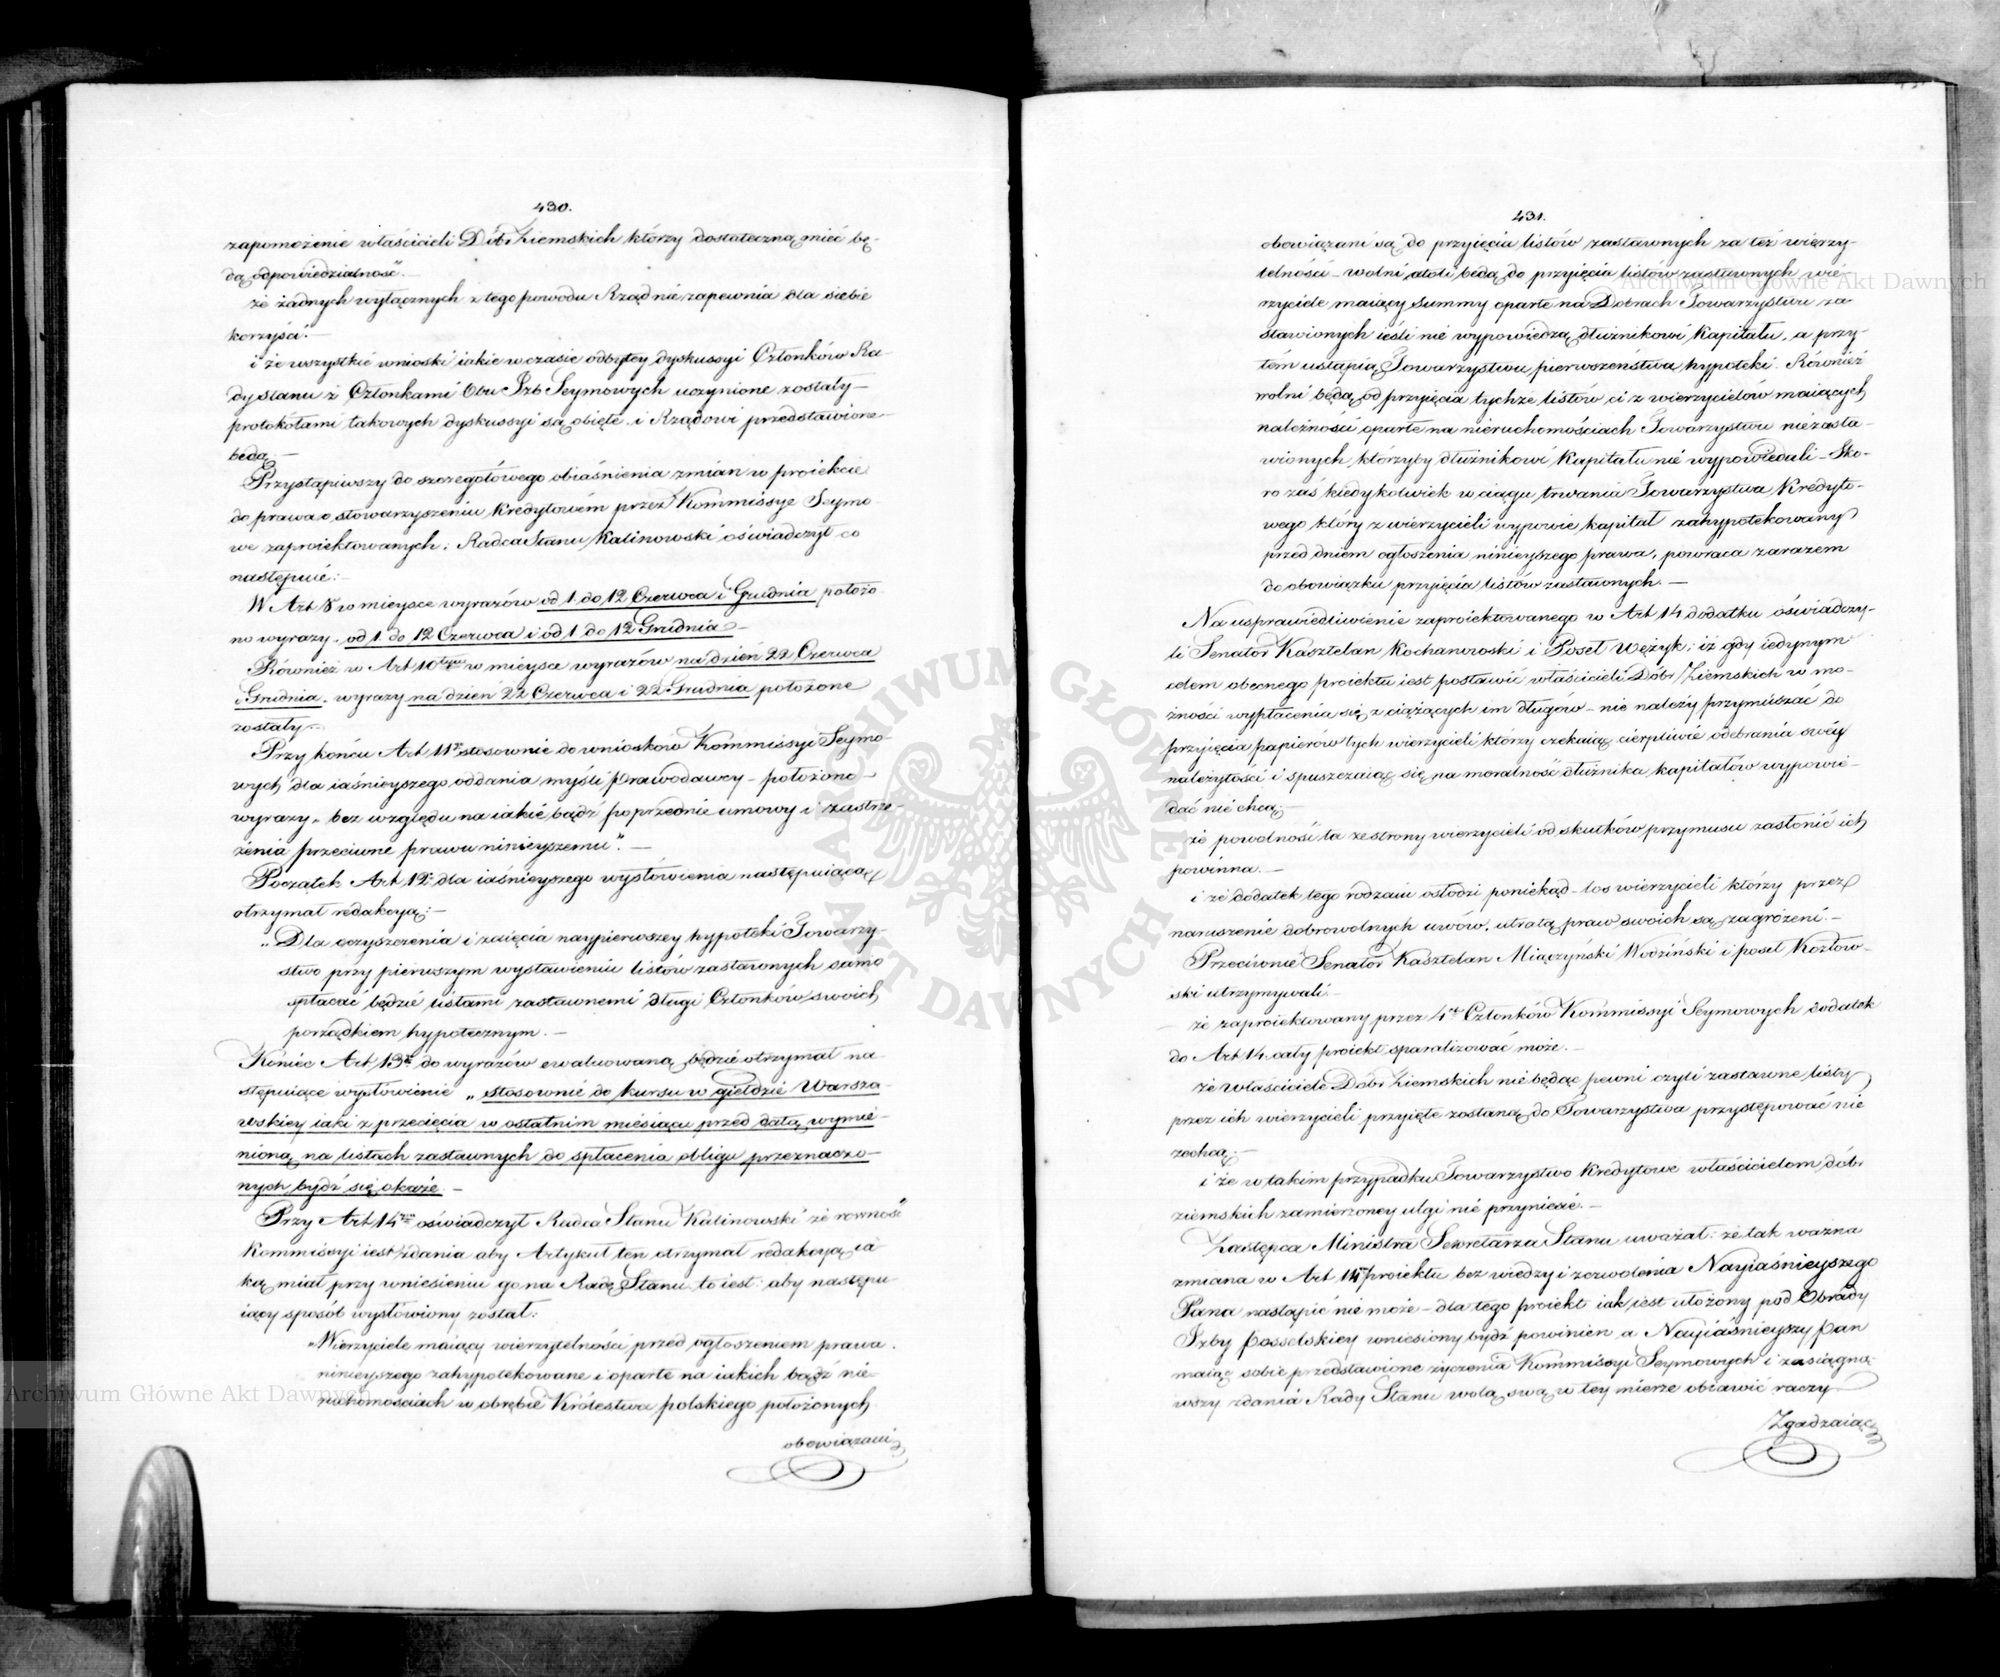 430.
zapomożenie właścicieli Dóbr Ziemskich którzy dostateczną mieć bę-
dą odpowiedzialność.—
że żadnych wyłącznych z tego powodu Rząd nie zapewnia dla siebie
korzyści.—
i że wszystkie wnioski iakie w czasie odbytey dyskussyi Członków Ra-
dy Stanu z Członkami Obu Izb Seymowych uczynione zostały—
protokołami takowych dyskussyi są obięte i Rządowi przedstawione
będą.—
Przystąpiwszy do szczegółowego obiaśnienia zmian w proiekcie
do prawa o stowarzyszeniu kredytowém przez Kommissye Seymo-
we zaproiektowanych; Radca Stanu Kalinowski oświadczył co
następuie:—
W Art 8 w mieysce wyrazów od 1. do 12 Czerwca i Grudnia położo-
no wyrazy „od 1. do 12 Czerwca i od 1. do 12 Grudnia"—
Również w Art 10tym w mieysce wyrazów na dzień 22 Czerwca
i Grudnia, wyrazy na dzień 22 Czerwca i 22 Grudnia położone
zostały.—
Przy końcu Art 11go stosownie do wniosków Kommissyi Seymo-
wych dla iaśnieyszego oddania myśli prawodawcy— położono—
wyrazy „bez względu na iakie bądź poprzednie umowy i zastrze-
żenia przeciwne prawu ninieyszemu".—
Początek Art 12. dla iaśnieyszego wysłowienia następuiącą
otrzymał redakcyą:—
„Dla oczyszczenia i zaięcia naypierwszey hypoteki Towarzy-
stwo przy pierwszym wystawieniu listów zastawnych samo
spłacać będzie listami zastawnemi długi Członków swoich
porządkiem hypotecznym.—
Koniec Art 13go do wyrazów ewaluowaną będzie otrzymał na-
stępuiące wysłowienie „stosownie do kursu w giełdzie Warsza-
wskiey iaki z przecięcia w ostatnim miesiącu przed datą wymie-
nioną na listach zastawnych do spłacenia obligu przeznaczo-
nych bydź się okaże—
Przy Art 14tym oświadczył Radca Stanu Kalinowski że równość
Kommissyi iest zdania aby Artykuł ten otrzymał redakcyą ia-
ką miał przy wniesieniu go na Radę Stanu to iest: aby następu-
iący sposób wysłowiony został:
„Wierzyciele maiący wierzytelności przed ogłoszeniem prawa
ninieyszego zahypotekowane i oparte na iakich bądź nie-
ruchomościach w obrębie Królestwa polskiego położonych
obowiązani
431.
obowiązani są do przyięcia listów zastawnych za też wierzy-
telności— wolni atoli będą do przyięcia listów zastawnych wie-
rzyciele maiący summy oparte na Dobrach Towarzystwu za
stawionych ieśli nie wypowiedzą dłużnikowi Kapitału, a przy-
tém ustąpią Towarzystwu pierwszeństwa hypoteki. Również
wolni będą od przyięcia tychże listów ci z wierzycielów maiących
należności oparte na nieruchomościach Towarzystwu niezasta-
wionych którzyby dłużnikowi Kapitału nie wypowiedzieli— Sko-
ro zaś kiedykolwiek w ciągu trwania Towarzystwa Kredyto-
wego który z wierzycieli wypowie kapitał zahypotekowany
przed dniem ogłoszenia ninieyszego prawa, powraca zarazem
do obowiązku przyięcia listów zastawnych.—
Na usprawiedliwienie zaproiektowanego w Art 14 dodatku oświadczy-
li Senator Kasztelan Kochanowski i Poseł Wężyk; iż gdy iedynym
celem obecnego proiektu iest postawić właścicieli Dóbr Ziemskich w mo-
żności wypłacenia się z ciążących im długów— nie należy przymuszać do
przyięcia papierów tych wierzycieli którzy czekaią cierpliwie odebrania swéy
należytości i spuszczaiąc się na moralność dłużnika kapitałów wypowie-
dać nie chcą;—
że powolność ta ze strony wierzycieli od skutków przymusu zasłonić ich
powinna.—
i że dodatek tego rodzaiu osłodzi poniekąd— los wierzycieli którzy przez
naruszenie dobrowolnych umów, utratą praw swoich są zagrożeni.—
Przeciwnie Senator Kasztelan Miączyński Wodziński i poseł Kozłow-
ski utrzymywali.—
że zaproiektowany przez 4ch Członków Kommissyi Seymowych dodatek
do Art 14. cały proiekt sparalizować może.—
że właściciele Dóbr Ziemskich nie będąc pewni czyli zastawne listy
przez ich wierzycieli przyięte zostaną do Towarzystwa przystępować nie
zechcą;—
i że w takim przypadku Towarzystwo Kredytowe właścicielom dóbr
ziemskich zamierzoney ulgi nie przyniesie.—
Zastępca Ministra Sekretarza Stanu uważał: że tak ważna
zmiana w Art 14 proiektu bez wiedzy i zezwolenia Nayiaśnieyszego
Pana nastąpić nie może— dla tego proiekt iak iest ułożony pod Obrady
Izby Posselskiey wniesiony bydź powinien a Nayiaśnieyszy pan
maiąc sobie przedstawione życzenia Kommissyi Seymowych i zasiągną-
wszy zdania Rady Stanu wolą swą w tey mierze obiawić raczy.—
Zgadzaiąc
Archiwum Główne Akt Dawnych
Archiwum Główne Akt Dawnych
ARCHIWUM GŁÓWNE AKT DAWNYCH